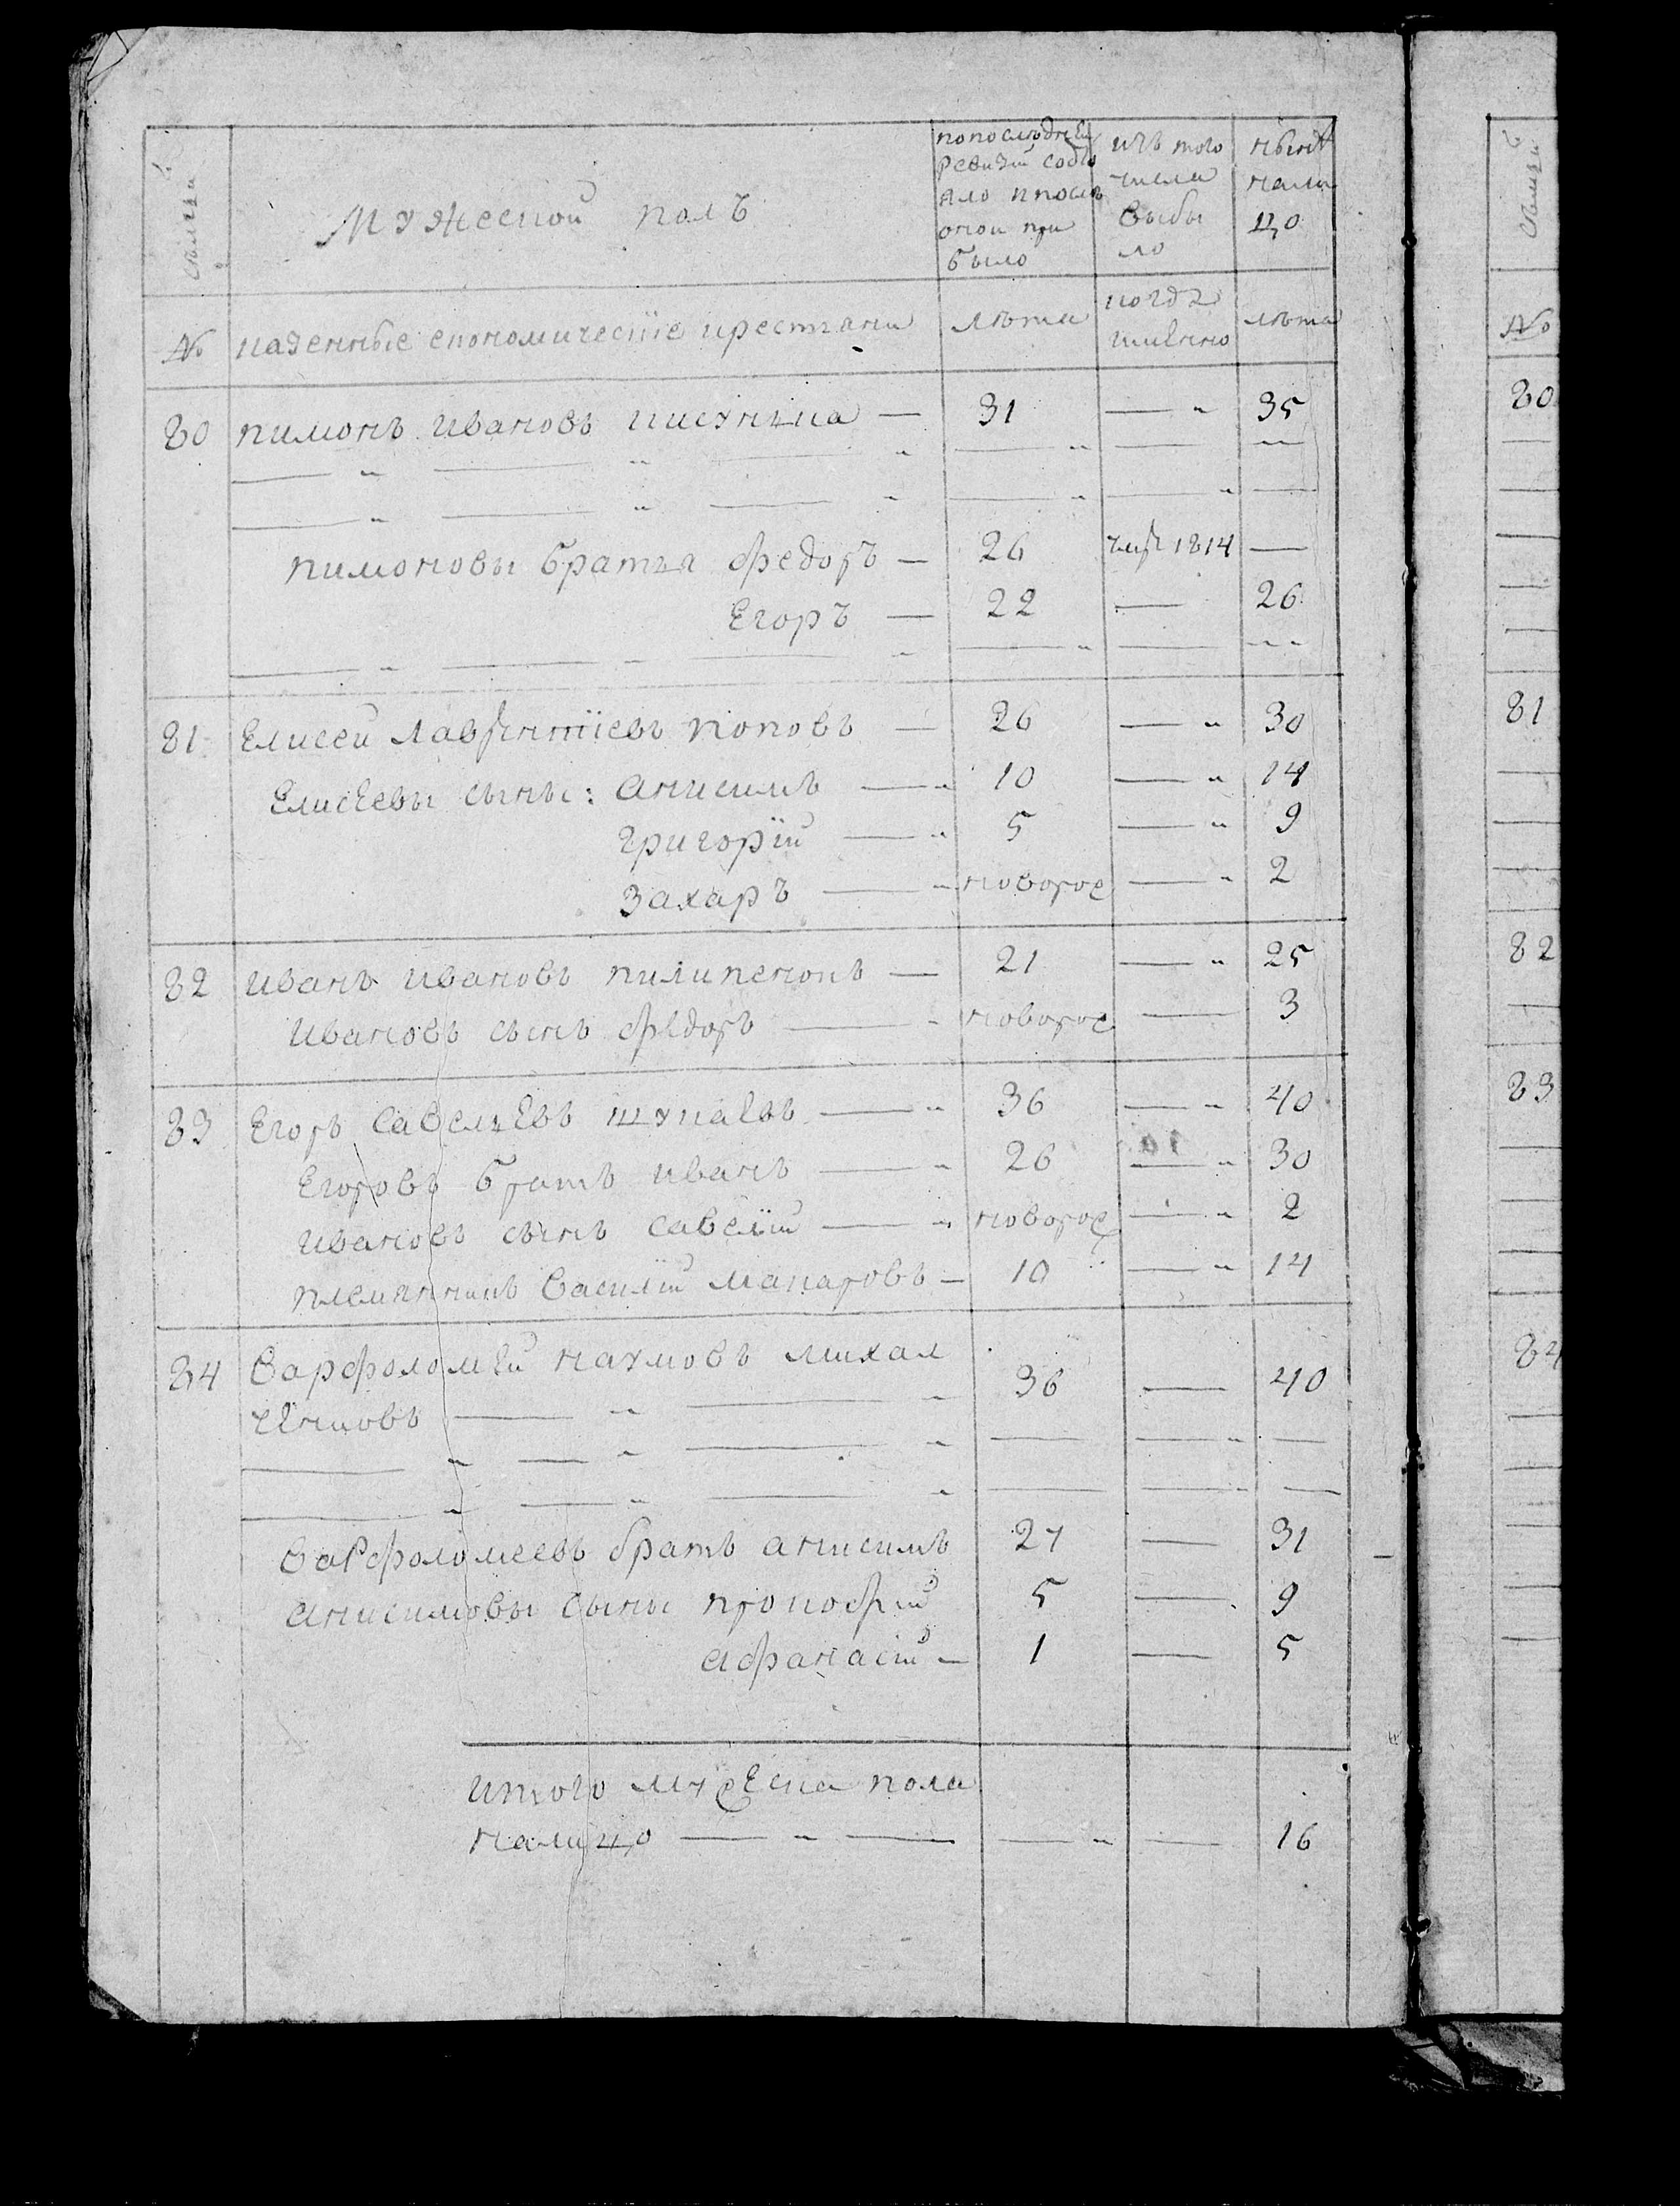 Семьи
Мужеской полъ
попослѣдней
Ревизіи состо
яло ипослѣ
оной при
было
изъ того
числа
выбы
ло
нынѣ
нали
цо
№ казенные економическiе крестьяне
лѣта
когда
имянно
лѣта
80 пимонъ ивановъ — 31 — " 35
пимоновы братья федоръ — 26 1814 —
Егоръ — 22 — 26
81 Елисей лаврентiевъ поповъ — 26 — " 30
Елисеевы сыны: анисимъ — " 10 — " 14
григорiй — " 5 — " 9
захаръ — " новорож — " 2
82 иванъ ивановъ пилипенокъ — 21 — " 25
ивановъ сынъ федоръ — " новорож — 3
83 Егоръ савельевъ шукаевъ — " 36 — " 40
Егоровъ братъ иванъ — " 26 — " 30
ивановъ сынъ савелiй — " новорож — " 2
племянникъ василiй макаровъ — 10 — " 14
84 варфоломей наумовъ михал
ченковъ — " — " 36 — 40
варфоломеевъ братъ анисимъ 27 — 31
анисимовы сыны прокофiй 5 — 9
афанасiй — 1 — 5
итого мужеска пола
налицо — " — — " — 16
Семьи
№
80
81
82
83
84